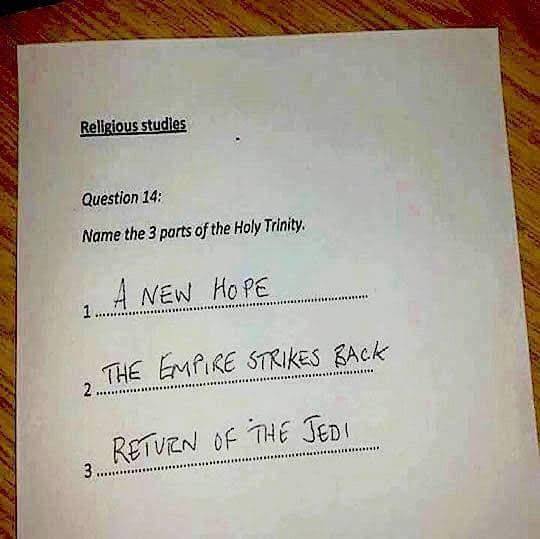 Religious studies
Question 14:
Name the 3 parts of the Holy Trinity.
1 A NEW HOPE
2 THE EMPIRE STRIKES BACK
3 RETURN OF THE JEDI